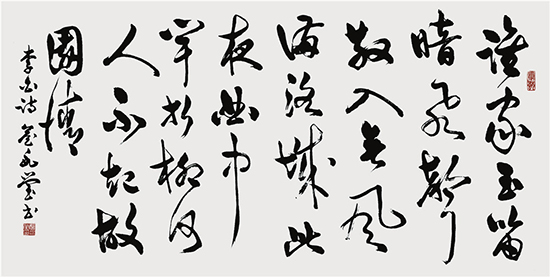 誰家玉笛
暗飛聲
散入春風
滿洛城此
夜曲中
聞折柳何
人不起故
園情
李白詩 書